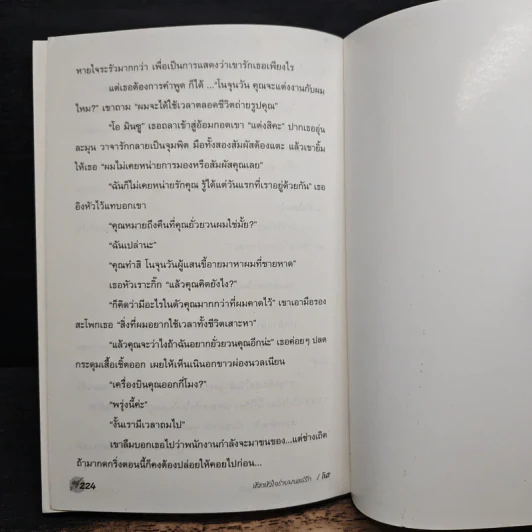 หายใจระรัวมากกว่า เพื่อเป็นการแสดงว่าเขารักเธอเพียงไร
แต่เธอต้องการคำพูด ก็ได้ ...“โนจุนวัน คุณจะแต่งงานกับผม
ไหม?” เขาถาม “ผมจะได้ใช้เวลาตลอดชีวิตถ่ายรูปคุณ”
“โอ มินซู” เธอถลาเข้าสู่อ้อมกอดเขา “แต่งสิคะ” ปากเธออุ่น
ละมุน วาจารักกลายเป็นจุมพิต มือทั้งสองสัมผัสต้องแตะ แล้วเขายิ้ม
ให้เธอ “ผมไม่เคยหน่ายการมองหรือสัมผัสคุณเลย”
“ฉันก็ไม่เคยหน่ายรักคุณ รู้ได้แต่วันแรกที่เราอยู่ด้วยกัน” เธอ
อิงหัวไว้แทบอกเขา
“คุณหมายถึงคืนที่คุณยั่วยวนผมใช่มั้ย?”
“ฉันเปล่านะ”
“คุณทำสิ โนจุนวันผู้แสนขี้อายมาหาผมที่ชายหาด”
เธอหัวเราะกิ๊ก “แล้วคุณคิดยังไง?”
“ก็คิดว่ามีอะไรในตัวคุณมากกว่าที่ผมคาดไว้” เขาเอามือรอง
สะโพกเธอ “สิ่งที่ผมอยากใช้เวลาทั้งชีวิตเสาะหา”
“แล้วคุณจะว่าไงถ้าฉันอยากยั่วยวนคุณอีกน่ะ” เธอค่อยๆ ปลด
กระดุมเสื้อเชิ้ตออก เผยให้เห็นเนินอกขาวผ่องนวลเนียน
“เครื่องบินคุณออกกี่โมง?”
“พรุ่งนี้ค่ะ”
“งั้นเรามีเวลาถมไป”
เขาลืมบอกเธอไปว่าพนักงานกำลังจะมาขนของ...แต่ช่างเถิด
ถ้ามากดกริ่งตอนนี้ก็คงต้องปล่อยให้คอยไปก่อน...
224